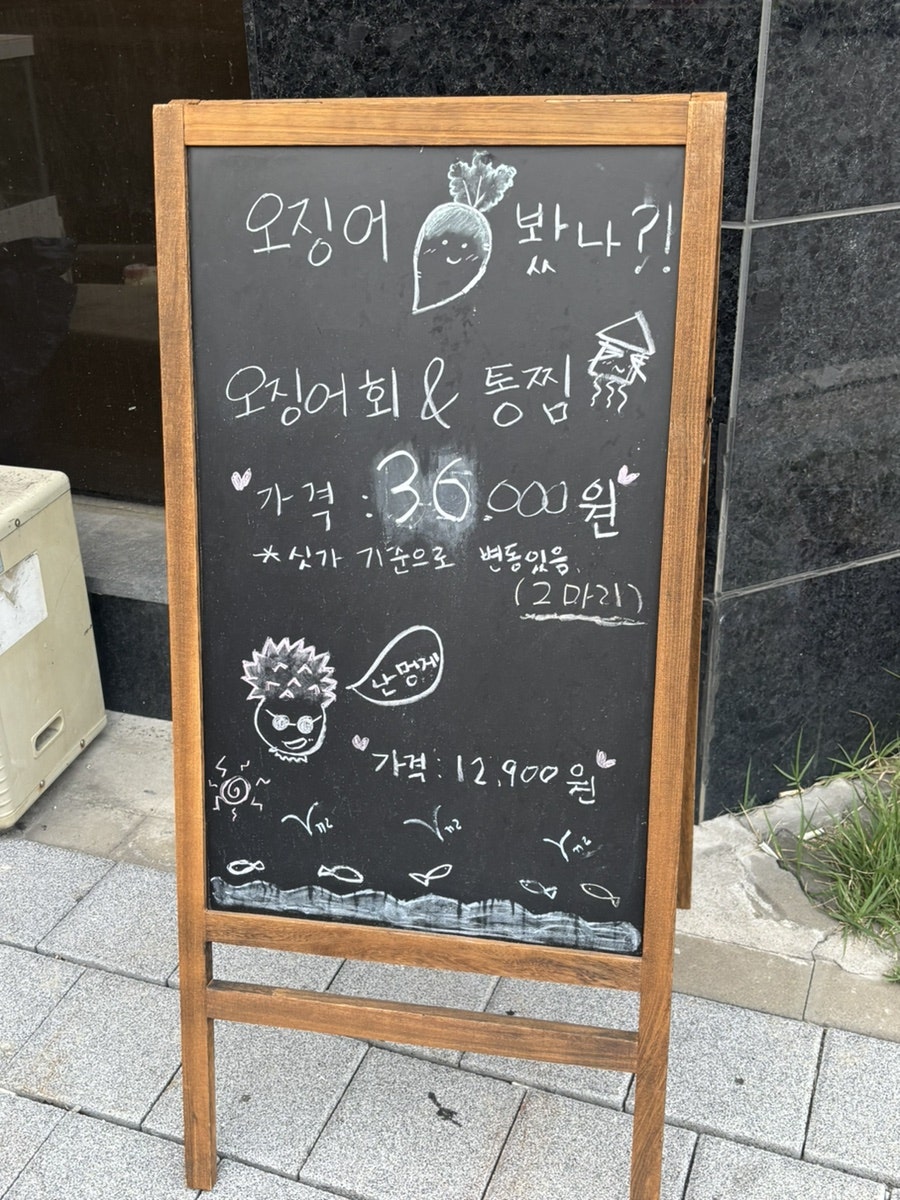 오징어 봤나?!
오징어회 & 통찜
가격 : 36,000원
*싯가 기준으로 변동있음.
(2마리)
난 멍게
가격 : 12,900원